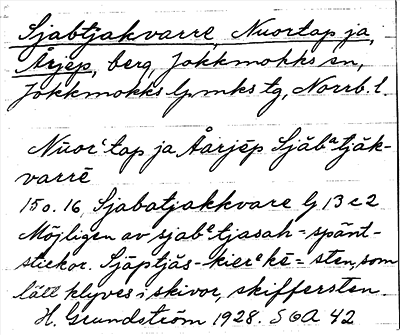 Sjabtjakvarre, Nuortap ja,
Årjep, berg, Jokkmokks sn,
Jokkmokks lpmks tg, Norrb. l.
Nuor'tap ja Åarjēp Sjăbᵃtjăk-
varrē
15 o. 16, Sjabatjakkvare bj 13 c 2
Möjligen av sjabᵉtjasah = spänt-
stickor. Sjäptjăs-kierᵉkē = sten, som
lätt klyves i skivor, skiffersten.
H. Grundström 1928. SOA 42